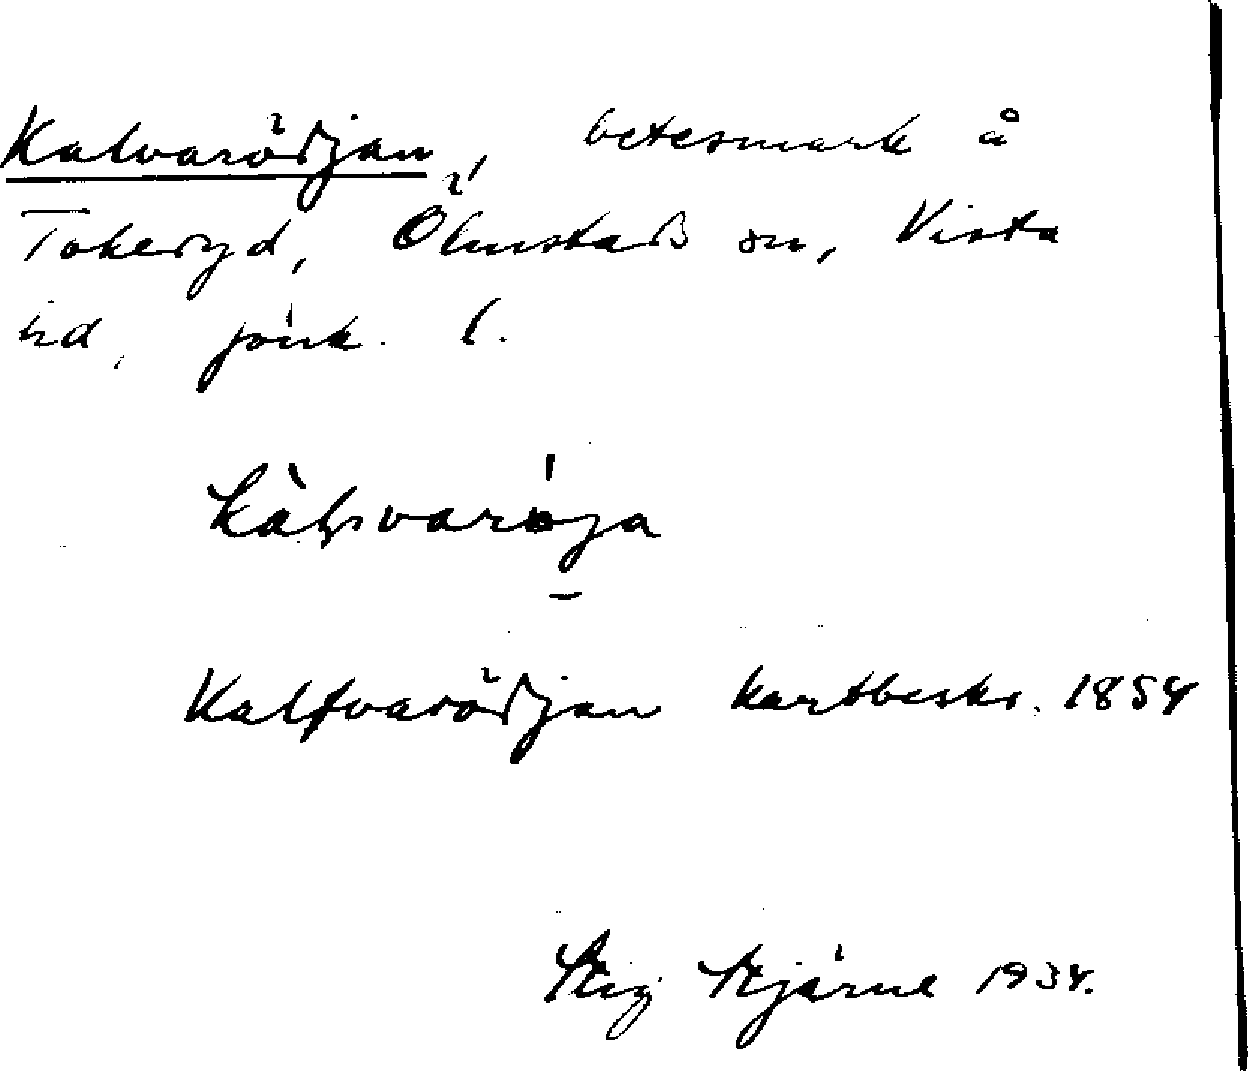 Kalvarödjan, betesmark å
Tokeryd, Ölmstads sn, Vista
hd, Jönk. l.
Kalfvarödjan kartbeskr. 1854
Stig Stjärne 1934.